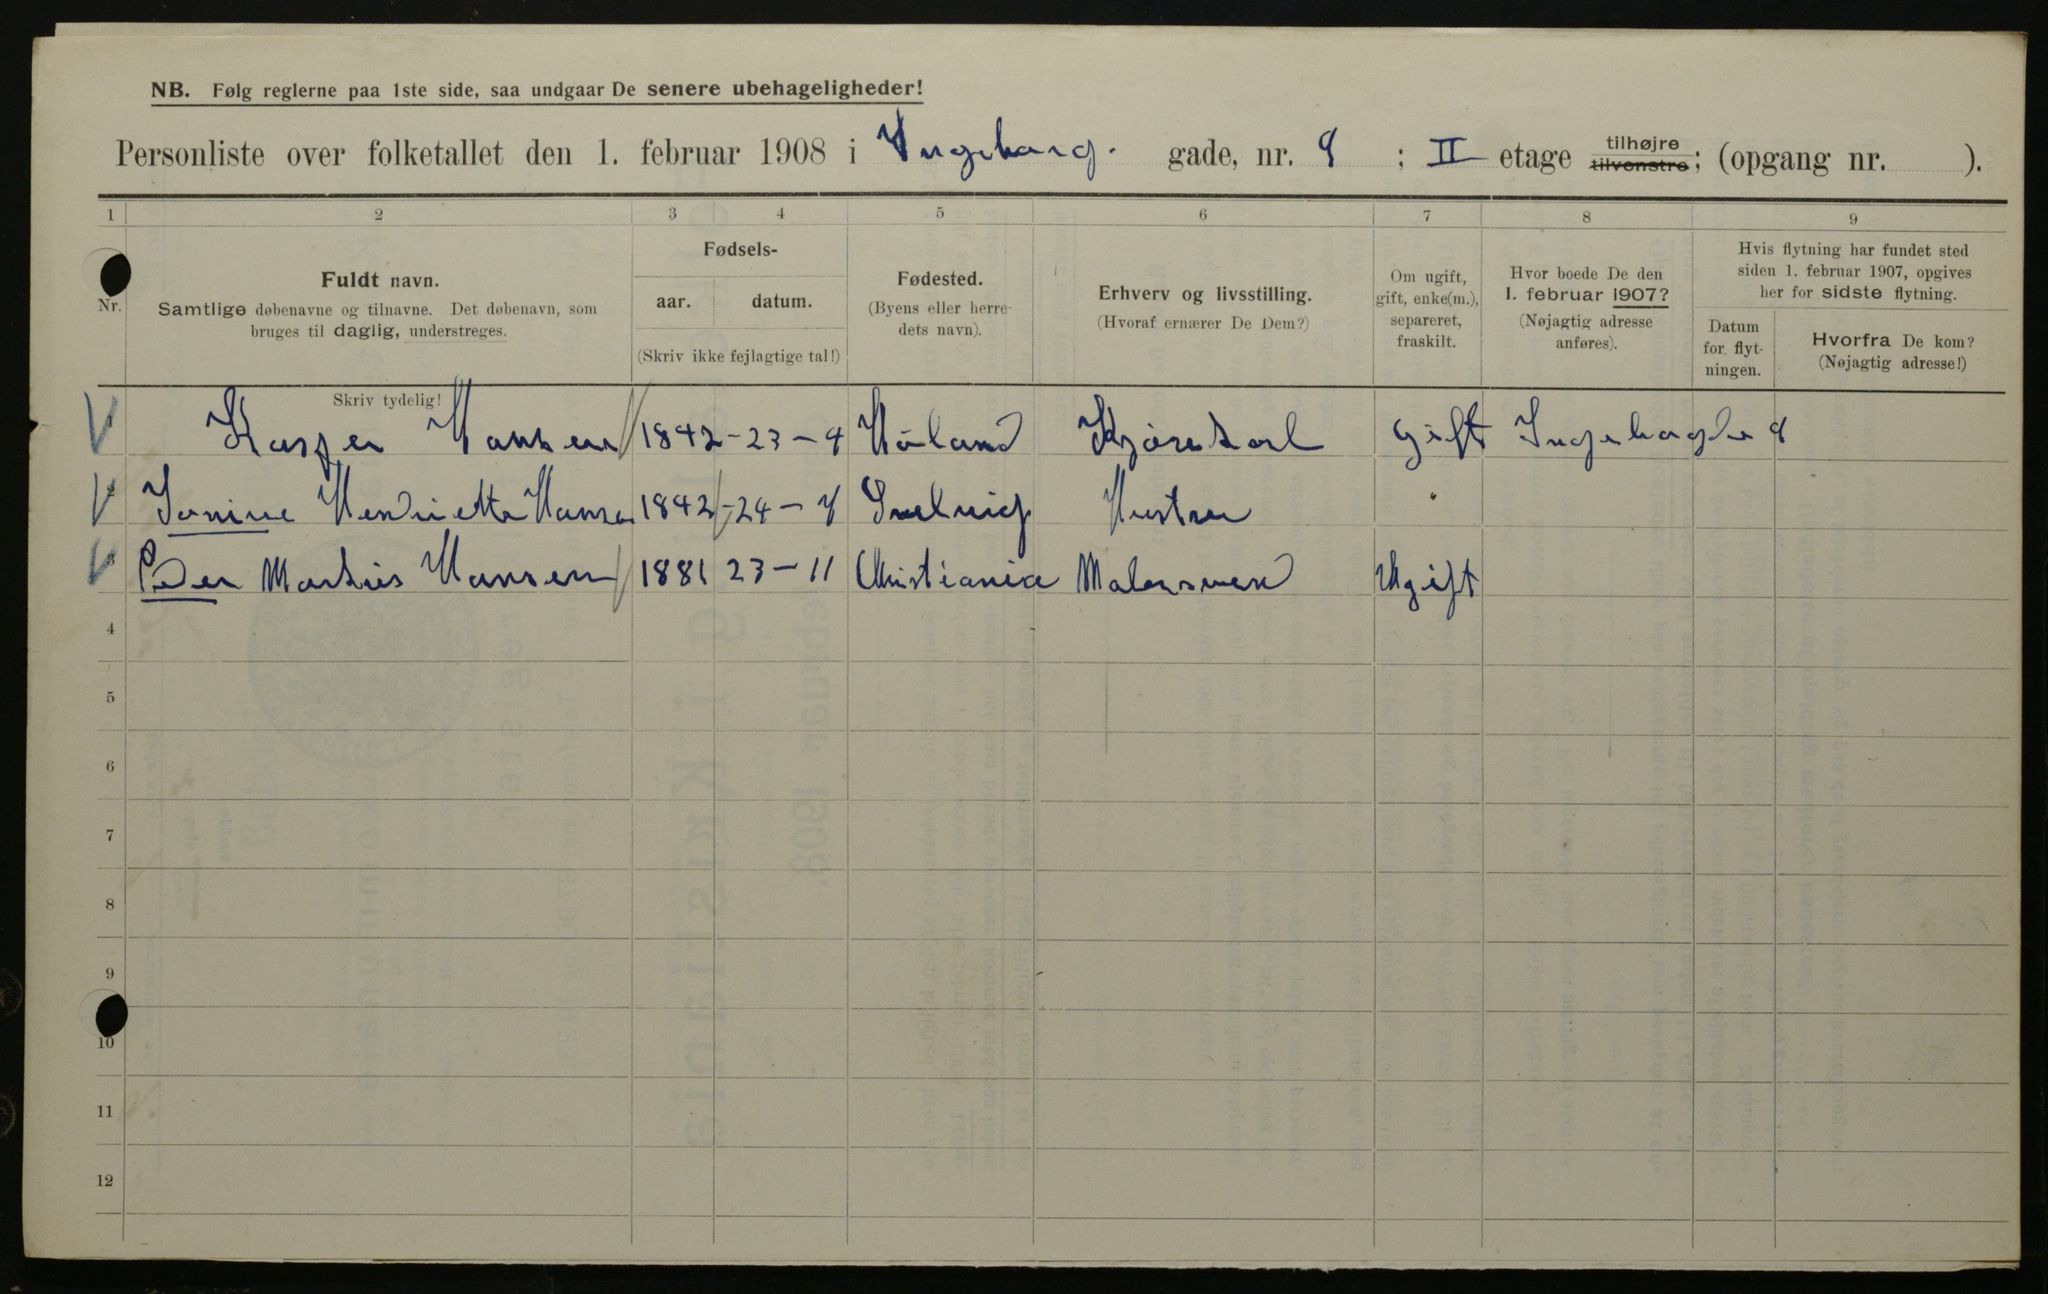 NB. Følg reglerne paa 1ste side, saa undgaar De senere ubehageligheder!
Personliste over folketallet den 1. februar 1908 i Ingeborg. gade, nr. 9 ; II etage tilhøjre tilvenstre; (opgang nr. ).
1 2 3 4 5 6 7 8 9
Nr.
Fuldt navn.
Samtlige døbenavne og tilnavne. Det døbenavn, som
bruges til daglig, understreges.
Fødsels-
aar. datum.
(Skriv ikke fejlagtige tal!)
Fødested.
(Byens eller herre-
dets navn).
Erhverv og livsstilling.
(Hvoraf ernærer De Dem?)
Om ugift,
gift, enke(m.),
separeret,
fraskilt.
Hvor boede De den
1. februar 1907?
(Nøjagtig adresse
anføres).
Hvis flytning har fundet sted
siden 1. februar 1907, opgives
her for sidste flytning.
Datum
for. flyt-
ningen.
Hvorfra De kom?
(Nøjagtig adresse!)
Skriv tydelig!
1 Kasper Hansen 1842 - 23 - 4 Høland Kjørekarl gift 9
2 Henriette Hansen 1842 - 24 - Hustru "
3 Peder Martius Hansen 1881 23 - 11 Christiania Malersvend Ugift
4
5
6
7
8
9
10
11
12